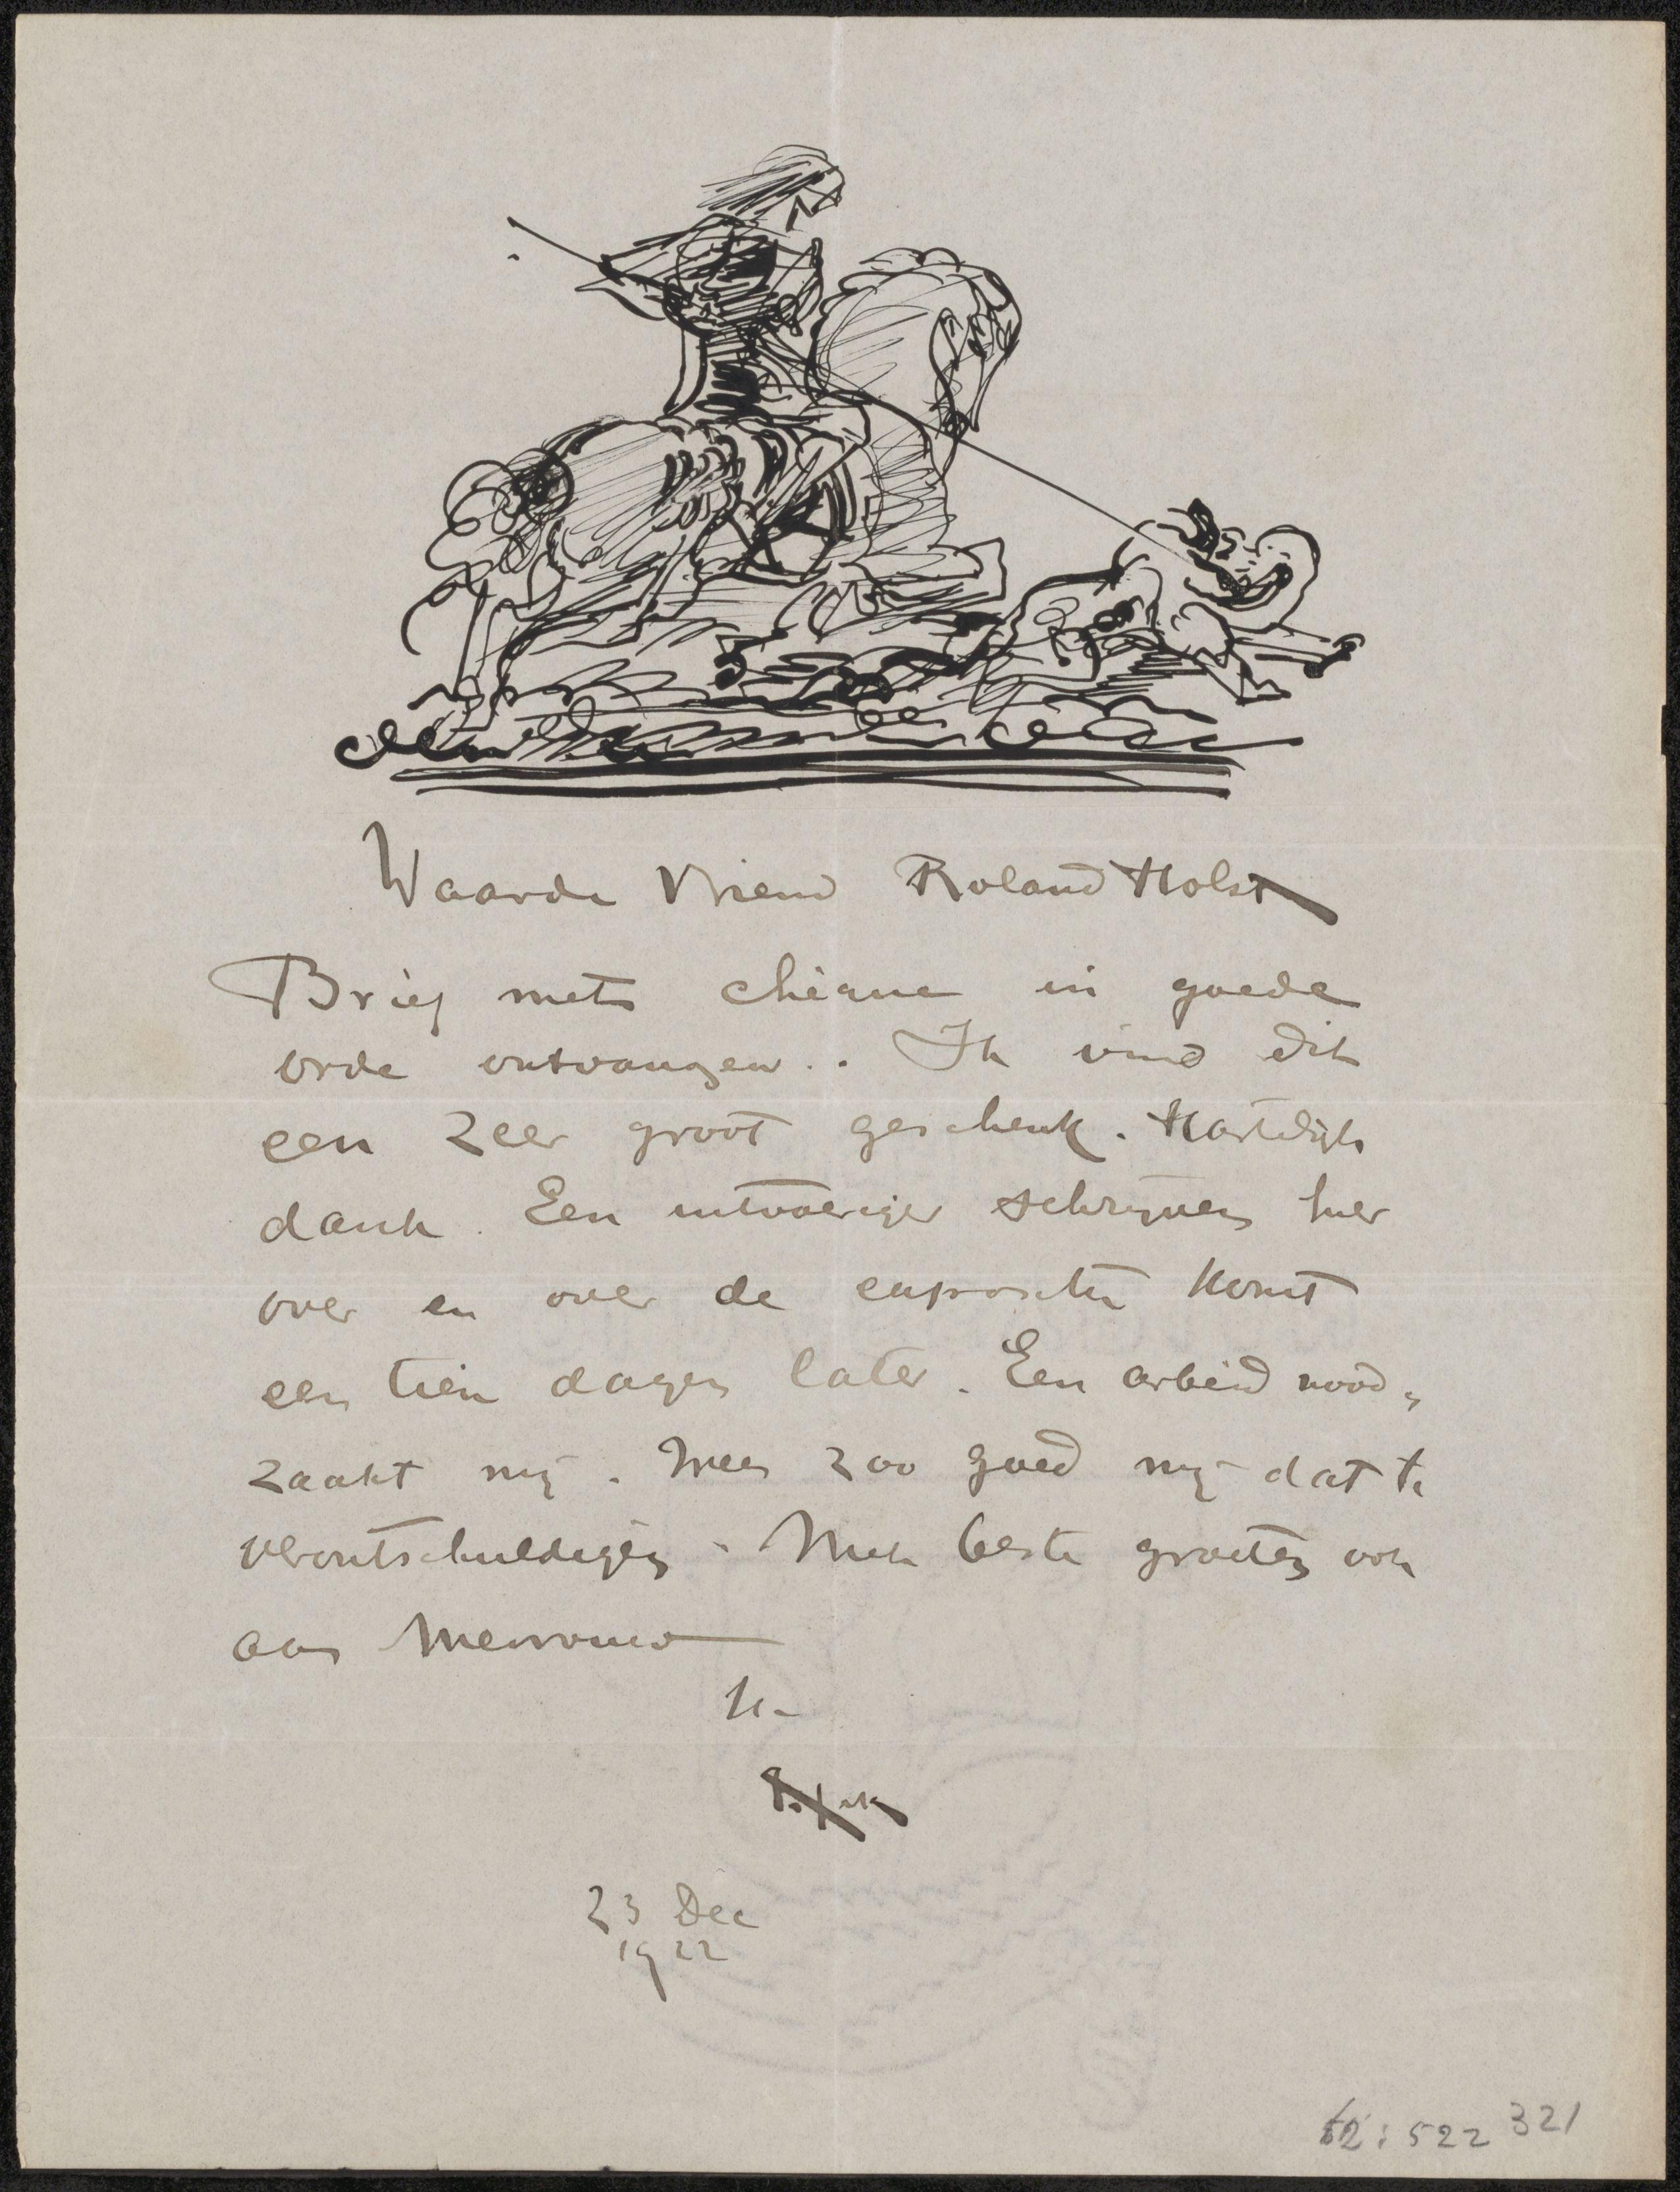 Waarde Vriend Roland Holst
Brief met chèque in goede
orde ontvangen. Ik vind dit
een zeer groot geschenk. Hartelijk
dank. Een uitvoeriger schrijven hier
over en over de expositie komt
een tien dagen later. Een arbeid nood„
zaakt mij. Wees zoo goed mij dat te
verontschuldigen. Met beste groeten ook
aan Mevrouw
Uw
23 Dec
1922
52:522 321